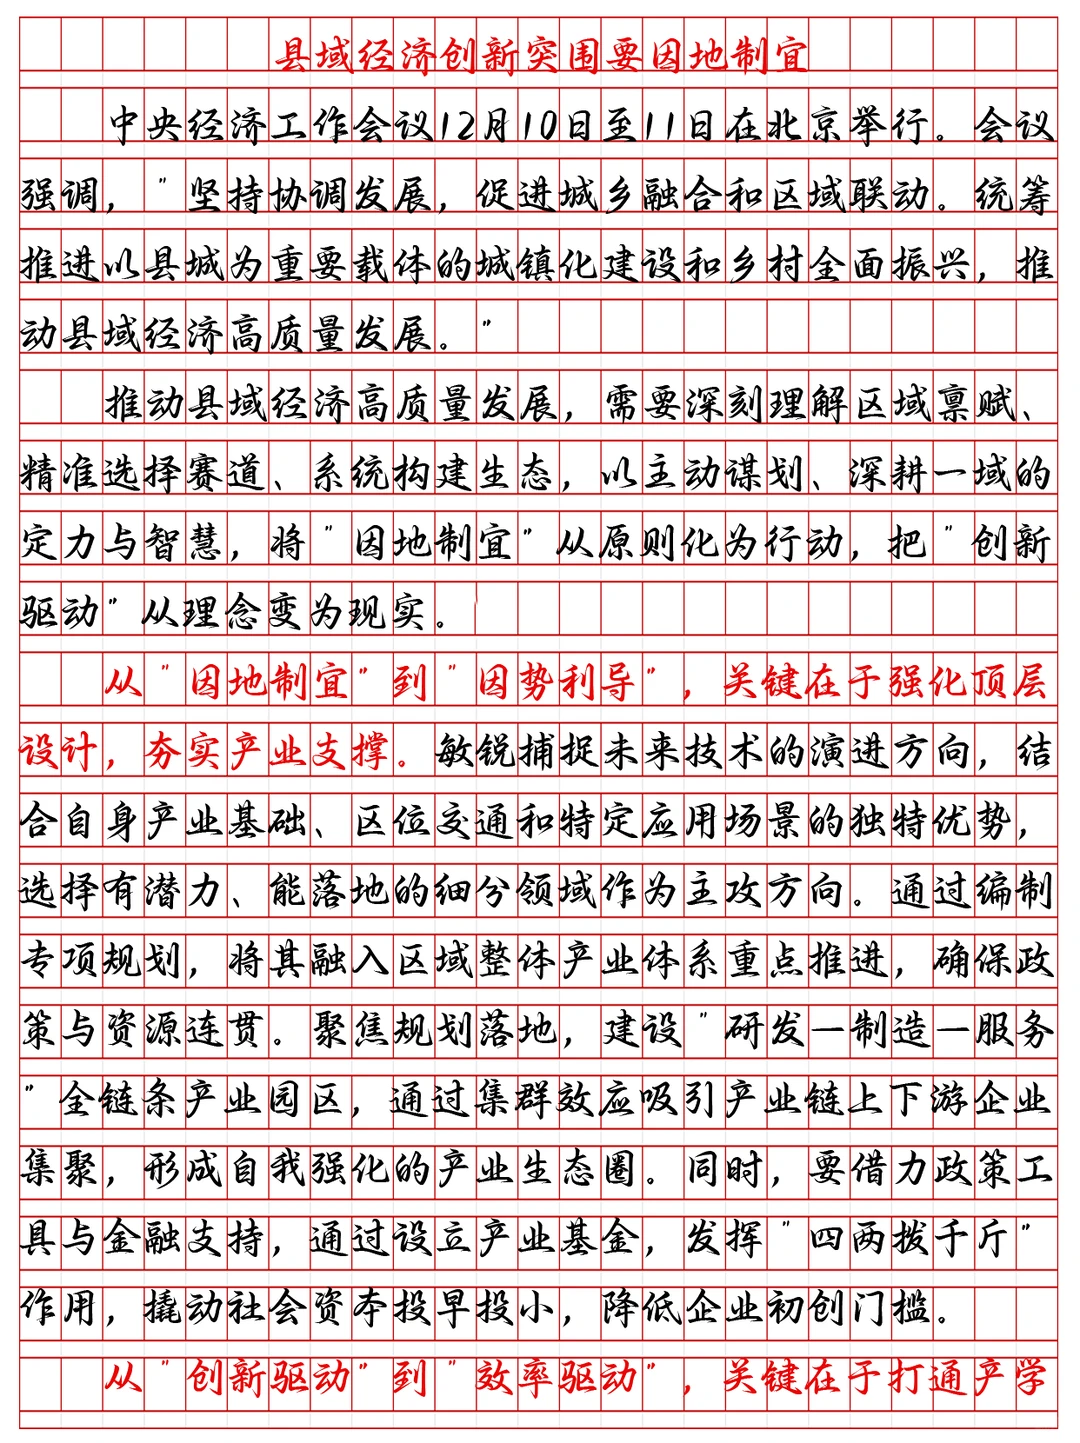 县域经济创新突围要因地制宜
中央经济工作会议12月10日至11日在北京举行。会议
强调，"坚持协调发展，促进城乡融合和区域联动。统筹
推进以县城为重要载体的城镇化建设和乡村全面振兴，推
动县域经济高质量发展。"
推动县域经济高质量发展，需要深刻理解区域禀赋、
精准选择赛道、系统构建生态，以主动谋划、深耕一域的
定力与智慧，将"因地制宜"从原则化为行动，把"创新
驱动"从理念变为现实。
从"因地制宜"到"因势利导"，关键在于强化顶层
设计，夯实产业支撑。敏锐捕捉未来技术的演进方向，结
合自身产业基础、区位交通和特定应用场景的独特优势，
选择有潜力、能落地的细分领域作为主攻方向。通过编制
专项规划，将其融入区域整体产业体系重点推进，确保政
策与资源连贯。聚焦规划落地，建设"研发—制造—服务
"全链条产业园区，通过集群效应吸引产业链上下游企业
集聚，形成自我强化的产业生态圈。同时，要借力政策工
具与金融支持，通过设立产业基金，发挥"四两拨千斤"
作用，撬动社会资本投早投小，降低企业初创门槛。
从"创新驱动"到"效率驱动"，关键在于打通产学